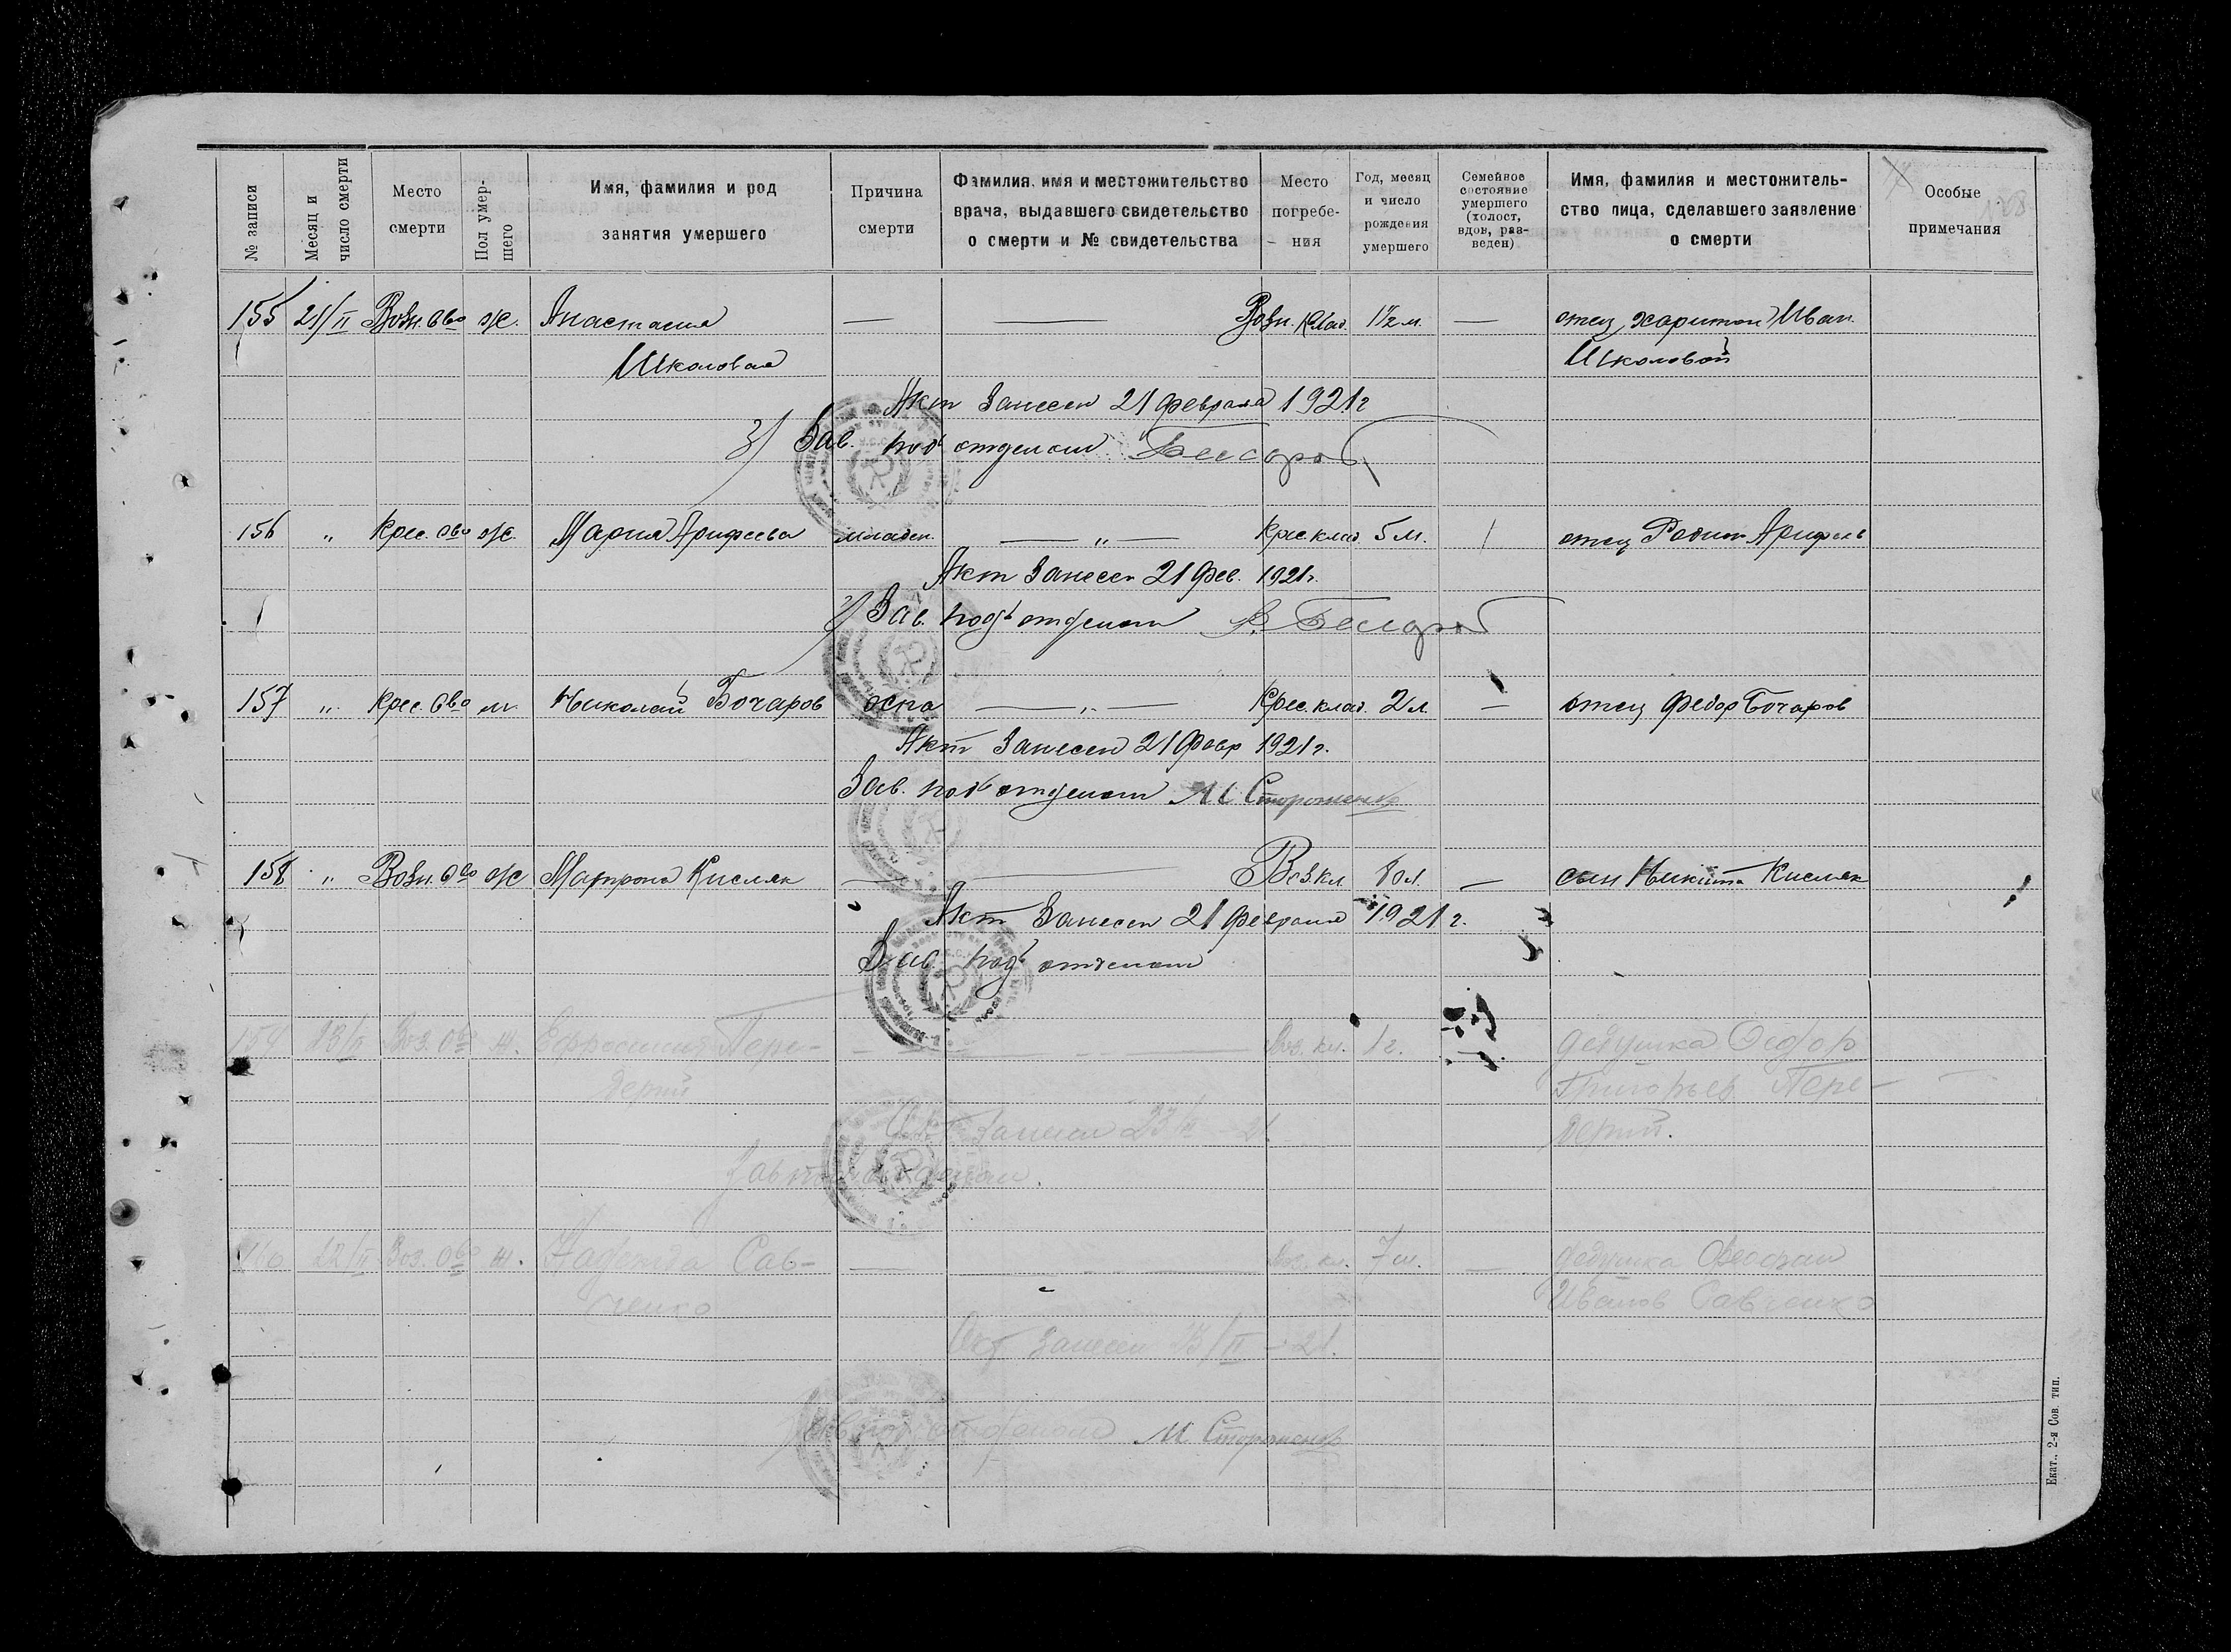 № записи
Месяц и число смерти
Место смерти
Пол умер-шего
Имя, фамилия и род занятия умершего
Причина смерти
Фамилия, имя и местожительство врача, выдавшего свидетельство о смерти и № свидетельства
Место погребе-ния
Год, месяц и число рождения умершего
Семейное состояние умершего (холост, вдов, раз-веден)
Имя, фамилия и местожитель-ство лица, сделавшего заявление о смерти
Особые примечания
155 21/II Возн. Ово ж. Анастасия — — Возн. Клад. 1½ м. — отец Харитон Иван.
Школовая Школовой
Акт Занесен 21 февраля 1921 г
Зав. подъотделом
156 " Крес. Ово ж. Мария Арифеева младен. — " — Крес. клад. 5 м. отец Родион Арифеев
Акт Занесен 21 фев. 1921 г.
Зав. подъотделом
157 " Крес. Ово м. Николай Бочаров оспа — " — Крес. клад. 2 л. — отец Федор Бочаров
Акт Занесен 21 февр 1921 г.
Зав. подъотделом М Стороженко
158 " Возн. Ово ж Матрона Кисляк — — Воз кл. 80 л. — сын Никита Кисляк
Акт Занесен 21 февраля 1921 г.
Зав. подъотделом
159 23/II Воз. Ово ж. Ефросиния Пере- — — Воз. кл. 1 г. дедушка Федор
дерий Григорьев Пере-
дерий.
Акт Занесен 23/II – 21.
Зав подотделом.
160 22/II Воз. Ово ж. Надежда Сав- — — Воз. кл. 7 м. — дедушка Феофан
ченко Иванов Савченко
Акт занесен 23/II – 21.
Зав подотделом М Стороженко
Екат., 2-я Сов. тип.